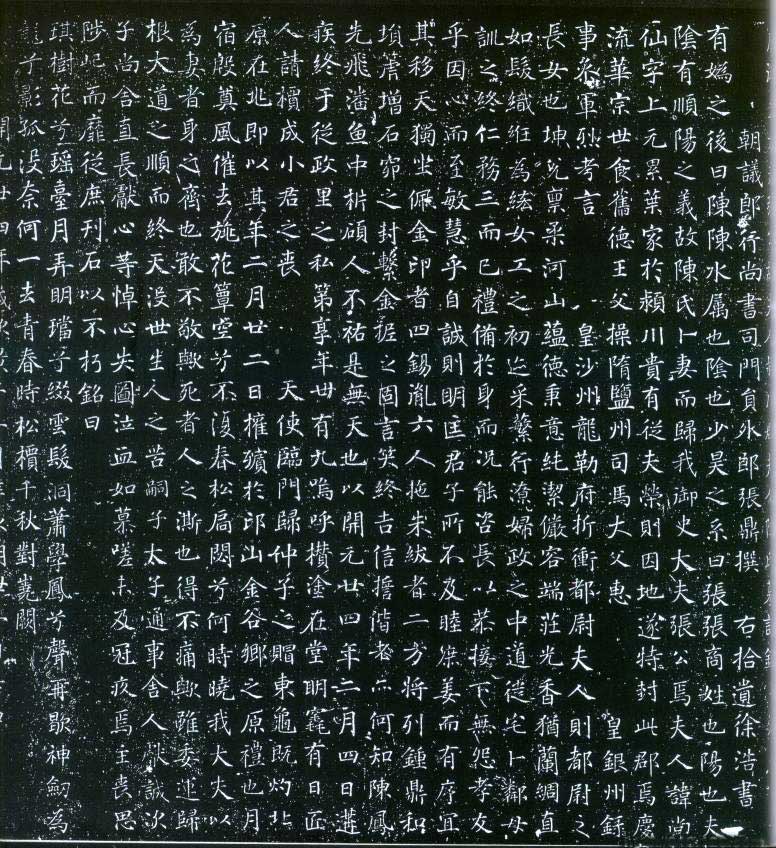 朝議郎行尚書司門員外郎張鼎撰 右拾遺徐浩書
有嬀之後曰陳陳水屬也陰也少昊之系曰張張商姓也陽也夫
陰有順陽之義故陳氏卜妻而歸我御史大夫張公焉夫人諱尚
仙字上元累葉家於潁川貴有從夫榮則因地遂特封此郡焉慶
流華宗世食舊德王父操隋鹽州司馬大父惠 皇銀州錄
事參軍烈考言 皇沙州龍勒府折衝都尉夫人則都尉之
長女也坤兌稟柔河山蘊德秉意純潔儼容端莊光香猶蘭綢直
如髮織紝為綾女工之初迄采蘩行潦婦政之中道從宅卜鄰母
訓之終仁務三而已禮備於身而況能咨長以恭接下無怨孝友
乎因心而至敏慧乎自誠則明匡君子所不及睦庶姜而有序宜
其移天獨坐佩金印者四錫胤六人拖朱紱者二方將列鍾鼎和
塤箎增石窌之封繫金柅之固言笑終吉信誓偕老亦何知陳鳳
先飛潘魚中析碩人不祐是無天也以開元廿四年二月四日遘
疾終于從政里之私第享年卅有九嗚呼攢塗在堂明竁有日匠
人請檟成小君之喪 天使臨門歸仲子之賵東龜既灼北
原在兆即以其年二月廿二日權殯於邙山金谷鄉之原禮也月
宿殷奠風催去旐花簟空兮不復春松扃閟兮何時曉我大夫以
為妻者身之齊也敢不敬歟死者人之澌也得不痛歟雖委運歸
根大道之順而終天沒世生人之苦嗣子太子通事舍人 誠次
子尚舍直長獻心等悼心失圖泣血如慕嗟未及冠疚焉主喪思
陟屺而靡從庶刊石以不朽銘曰
琪樹花兮瑤臺月弄明璫兮綴雲髮洞蕭學鳳兮聲再歇神劒為
龍兮影孤沒奈何一去青春時松檟千秋對嵬闕